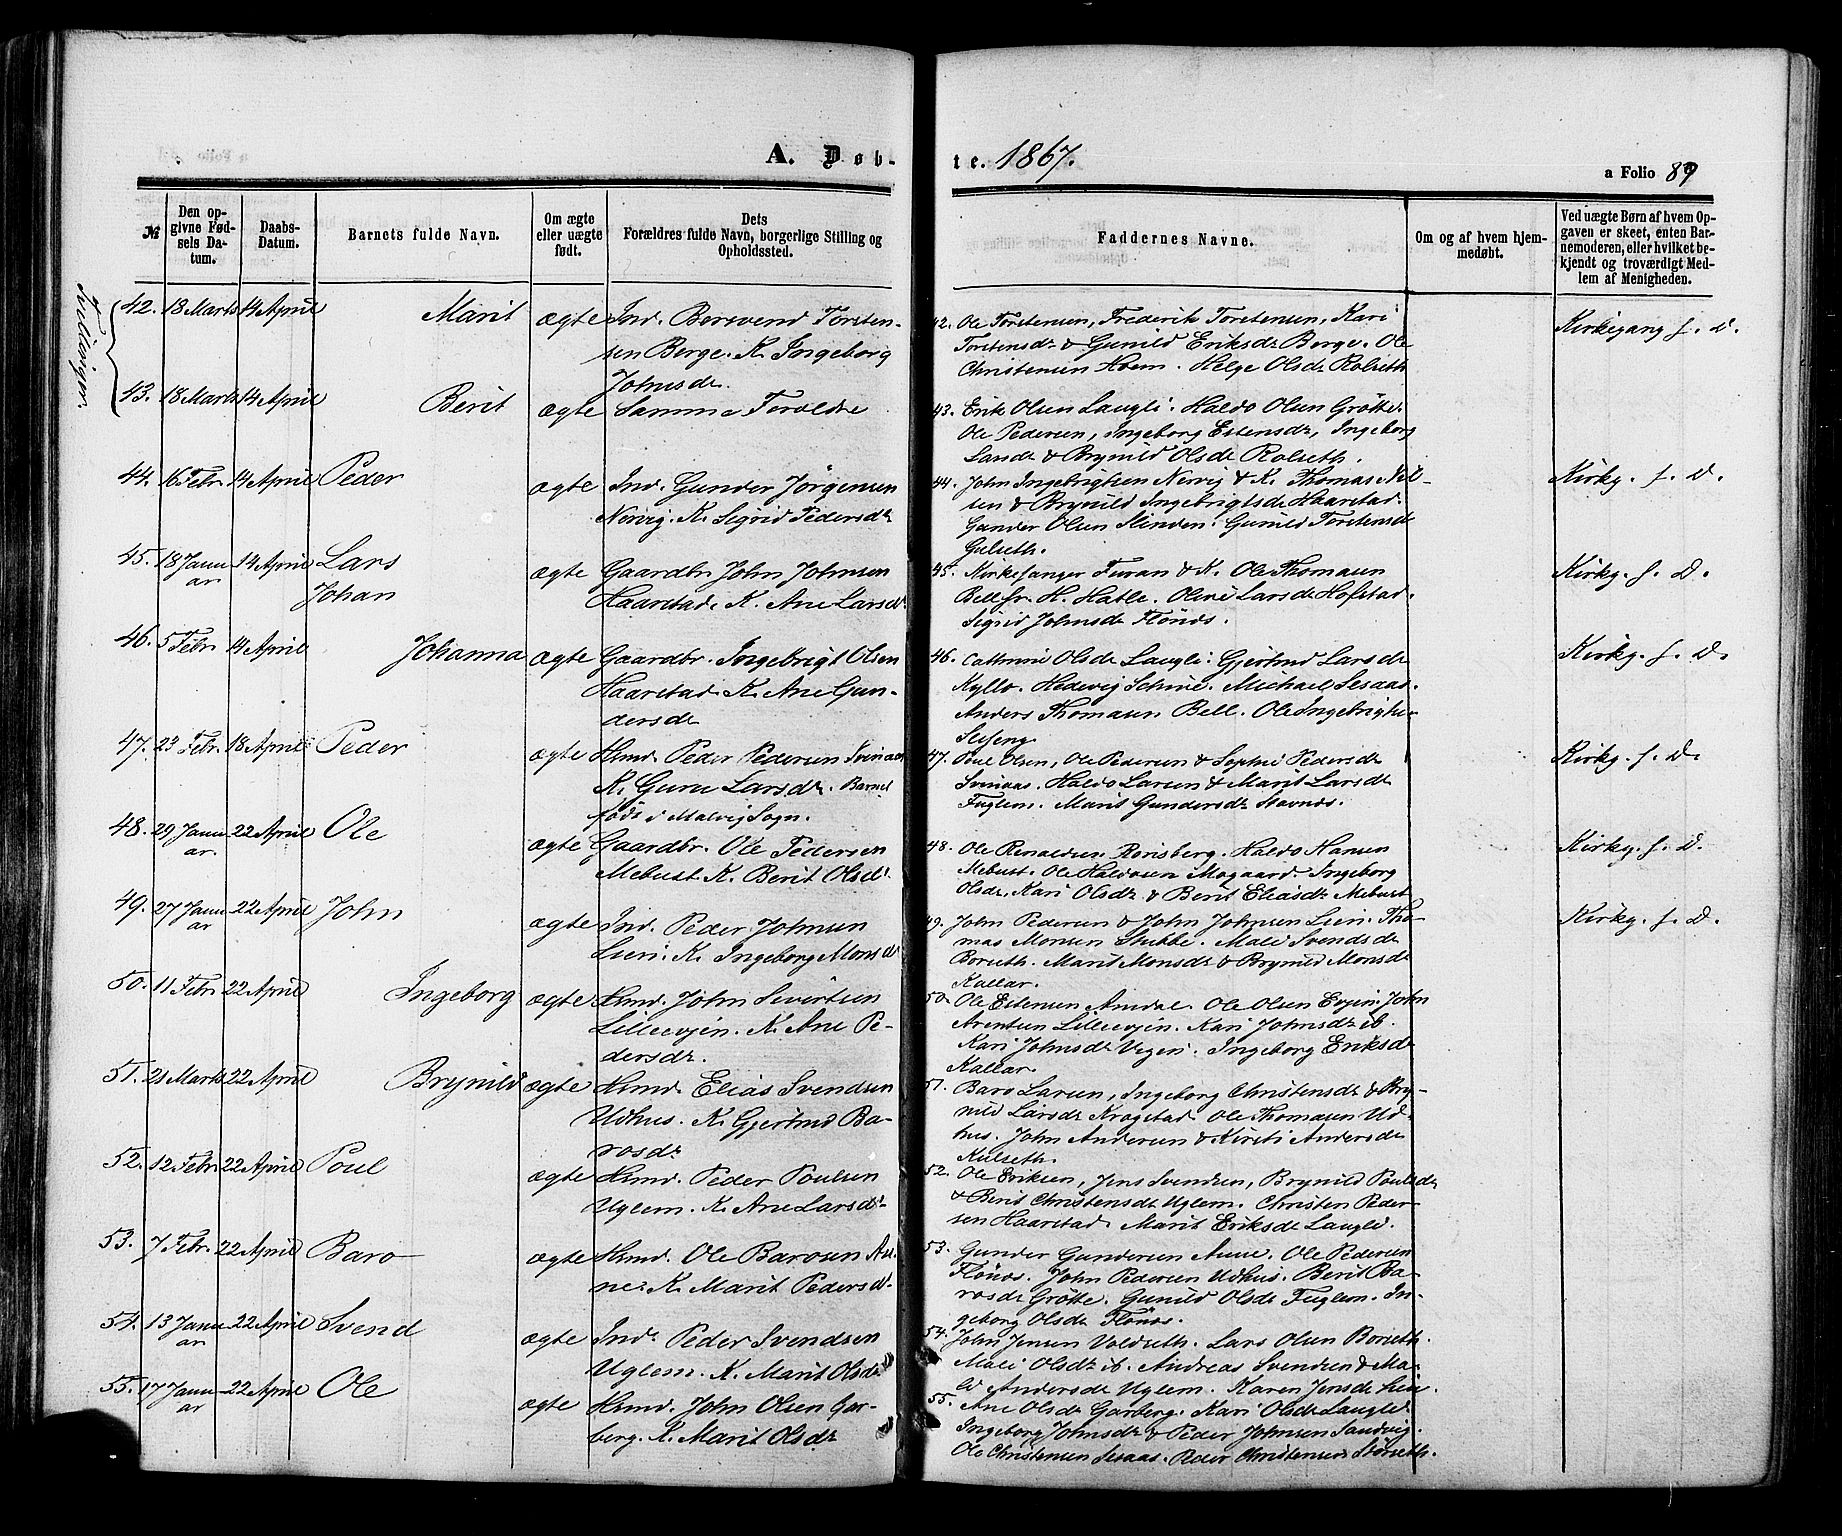 A. Døb-
te. 1867.
a Folio 89
№
Den op-
givne Fød-
sels Da-
tum.
Daabs-
Datum.
Barnets fulde Navn.
Om ægte
eller uægte
født.
Dets
Forældres fulde Navn, borgerlige Stilling og
Opholdssted.
Faddernes Navne.
Om og af hvem hjem-
medøbt.
Ved uægte Børn af hvem Op-
gaven er skeet, enten Bar-
nemoderen, eller hvilket be-
kjendt og troværdigt Med-
lem af Menigheden.
Tvillinger.
42. 18 Marts 14 April Marit ægte Ind. Bersvend Torsten-
sen Berge. K. Ingeborg
Johnsdr
42. Ole Torstensen, Frederik Torstensen, Kari
Torstensdr & Gunild Eriksdr Berge. Ole
Christensen Hoem. Helge Olsdr Rolseth
Kirkegang f. D.
43. 18 Marts 14 April Berit ægte Samme Forældre
43. Erik Olsen Laugli. Haldo Olsen Grøtte.
Ole Pedersen, Ingeborg Estensdr, Ingeborg
Larsdr & Brynild Olsdr Rolseth.
44. 16 Febr. 14 April Peder ægte Ind. Gunder Jørgensen
Nervig. K. Sigrid Pedersdr
44. John Ingebrigtsen Nervig & K. Thomas Nil-
sen & Brynild Ingebrigtsdr Haarstad.
Gunder Olsen Slinden. Gunild Torstensdr
Gulseth.
Kirkg. f. D.
45. 18 Janu
ar 14 April Lars
Johan ægte Gaardbr John Johnsen
Haarstad. K. Ane Larsdr
45. Kirkesanger Furan & K. Ole Thomasen
Bell fr. H. Hatle. Oline Larsdr Hofstad.
Sigrid Johnsdr Flönæs.
Kirkg. f. D.
46. 5 Febr. 14 April Johanna ægte Gaardbr. Ingebrigt Olsen
Haarstad K. Ane Gun-
dersdr
46. Cathrine Olsdr Laugli. Gjertrud Larsdr
Kyllo. Hedevig Schive. Michael Sesaas.
Anders Thomasen Bell. Ole Ingebrigtsen
Kirkg. f. D.
47. 23 Febr. 18 April Peder ægte Hsmd. Peder Pedersen Svinaas
K. Guru Larsdr. Barnet
født i Malvig Sogn.
47. Poul Olsen, Ole Pedersen & Sophie Pedersdr
Svinaas. Haldo Larsen & Marit Larsdr
Fuglem. Marit Gundersdr Stavnæs.
Kirkg. f. D.
48. 29 Janu
ar. 22 April Ole ægte Gaardbr. Ole Pedersen
Mebust K. Berit Olsdr.
48. Ole Renaldsen Rønsberg. Haldo Hansen
Mebust. Ole Haldosen Mogaard. Ingeborg
Olsdr, Kari Olsdr & Berit Eliasdr Mebust
Kirkg. f. D.
49. 27 Janu
ar 22 April John ægte Ind. Peder Johnsen
Lien. K. Ingeborg Monsdr
49. John Pedersen & John Johnsen Lien. Tho-
mas Monsen Stubbe. Mali Svendsdr
Borseth. Marit Monsdr & Brynild Monsdr
Kallar.
Kirkg. f. D.
50. 11 Febr. 22 April Ingeborg ægte Hsmd. John Sivertsen
Lilleevjen. K. Ane Pe-
dersdr.
50. Ole Estensen Amdal. Ole Olsen Evjen. John
Arentsen Lilleevjen. Kari Johnsdr ib.
Kari Johnsdr Vegen. Ingeborg Eriksdr
Kallar.
51. 21 Marts 22 April Brynild ægte Hsmd. Elias Svendsen
Udhus. K. Gjertrud Ba-
rosdr
51. Baro Larsen, Ingeborg Christensdr & Bry-
nild Larsdr Krogstad. Ole Thomasen Ud-
hus. John Andersen & Kirsti Andersdr
Kulseth.
52. 12 Febr. 22 April Poul ægte Hsmd. Peder Poulsen
Uglem. K. Ane Larsdr.
52. Ole Eriksen, Jens Svendsen, Brynild Poulsdr
& Berit Christensdr Uglem. Christen Peder-
sen Haarstad. Marit Eriksdr Laugli.
53. 7 Febr. 22 April Baro ægte Hsmd. Ole Barosen Au-
ne. K. Marit Pedersdr.
53. Gunder Gundersen Aune. Ole Pedersen
Flönæs. John Pedersen Udhus. Berit Ba-
rosdr Grøtte. Gunild Olsdr Fuglem. In-
geborg Olsdr Flönæs.
54. 13 Janu
ar 22 April Svend ægte Ind. Peder Svendsen
Uglem. K. Marit Olsdr
54. John Jensen Voldseth. Lars Olsen Borseth.
Mali Olsdr ib. Andreas Svendsen & Ma-
li Andersdr Uglem. Karen Jensdr Lien.
55. 17 Janu
ar 22 April Ole ægte Hsmd. John Olsen Gar-
berg. K. Marit Olsdr
55. Ane Olsdr Garberg. Kari Olsdr Laugli
Ingeborg Johnsdr & Peder Johnsen Sandvig.
Ole Christensen Sesaas. Peder Christensen Storseth.